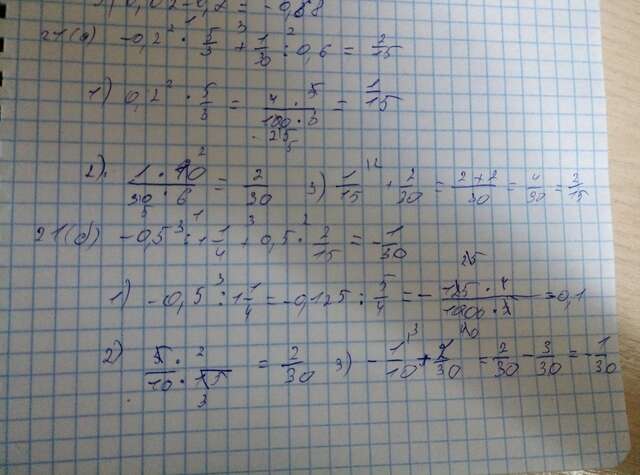 3) 0,02 - 0,7 = -0,68
21(а) -0,2² · 5/3 + 1/30 : 0,6 = 2/15
1) 0,2² · 5/3 = 4 · 5 / 100 · 3 = 1/15
2) 1 · 10 / 30 · 6 = 2/30 3) 1/15 + 2/30 = 2+2/30 = 4/30 = 2/15
21(б) -0,5³ : 1 1/4 + 0,5 · 2/15 = -1/30
1) -0,5³ : 1 1/4 = -0,125 : 5/4 = - 125 · 4 / 1000 · 5 = -0,1
2) 5 · 2 / 10 · 15 = 2/30 3) -1/10 + 2/30 = 2/30 - 3/30 = -1/30